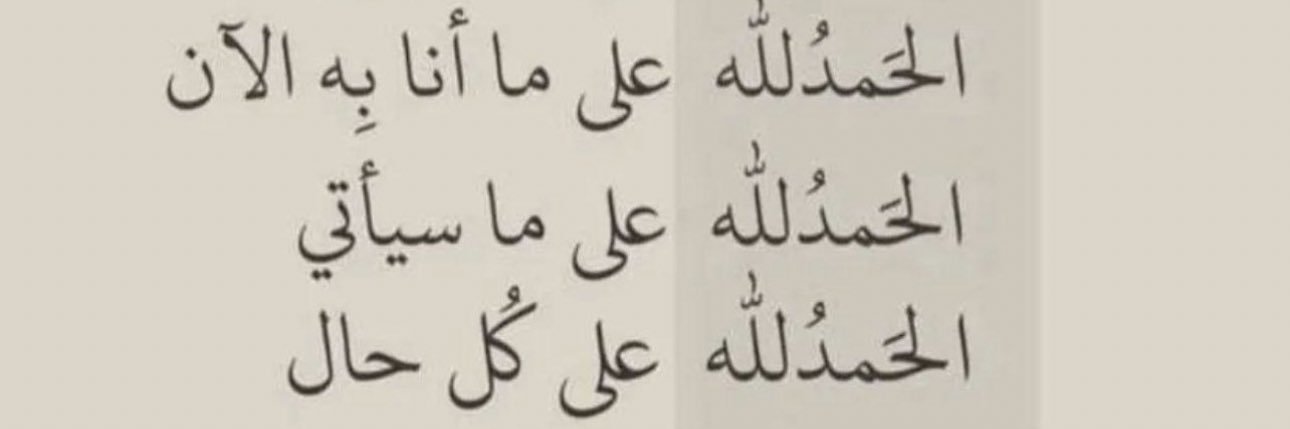 الحَمدُلله على ما أنا بِه الآن
الحَمدُلله على ما سيأتي
الحَمدُلله على كُل حال